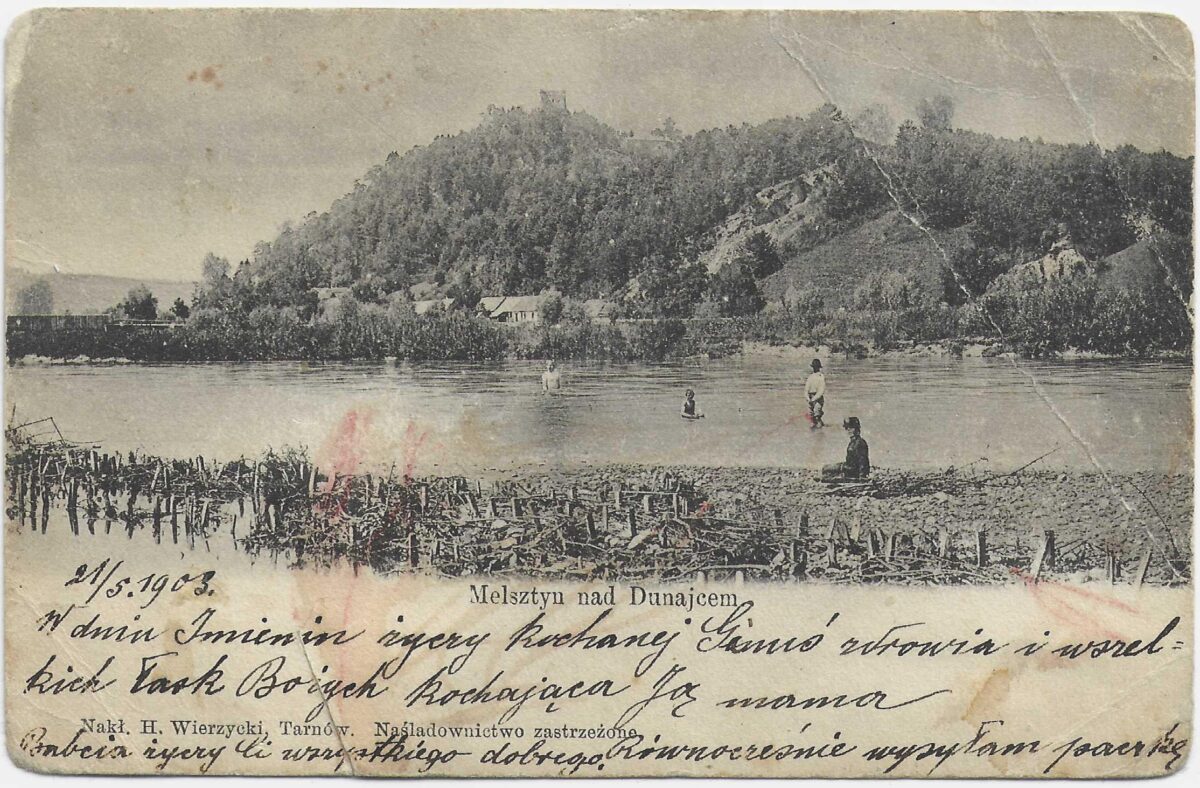 Melsztyn nad Dunajcem
21/5.1903.
W dniu Imienin życzy kochanej Gienuś zdrowia i wszel=
kich łask Bożych kochająca Ją mama
Nakł. H. Wierzycki, Tarnów. Naśladownictwo zastrzeżone.
Babcia życzy Ci wszystkiego dobrego. Równocześnie wysyłam paczkę